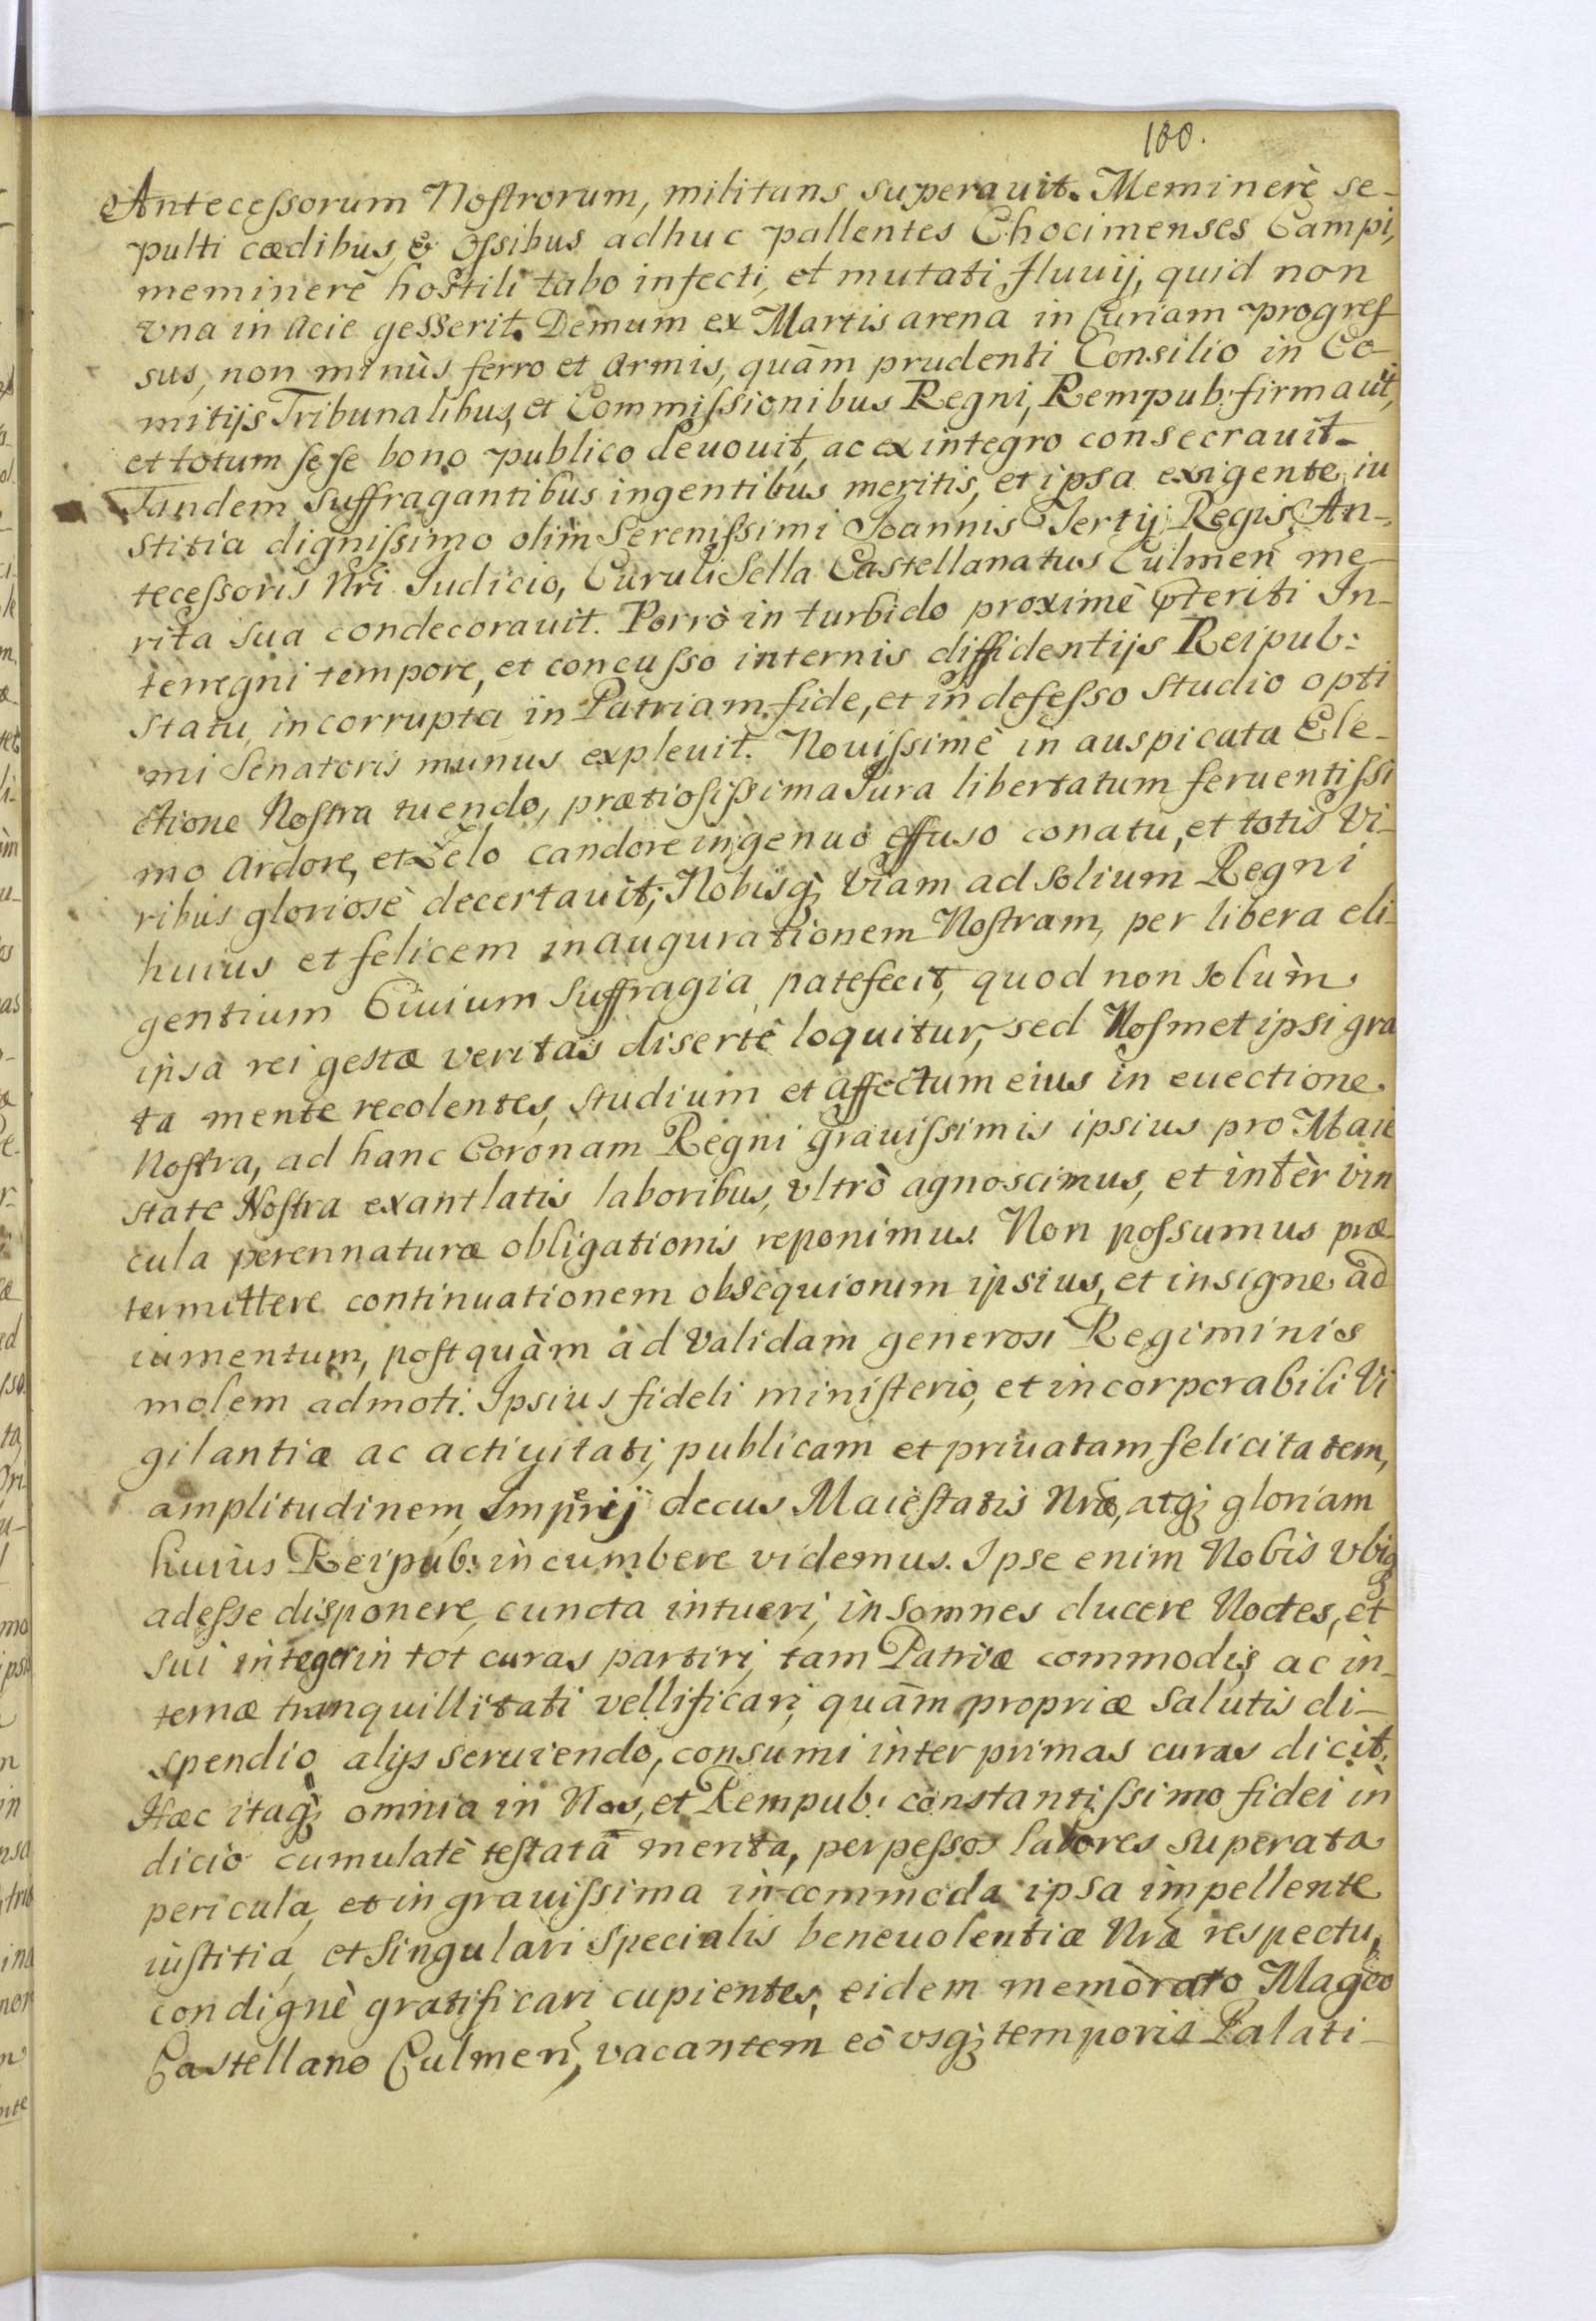 100.
Antecessorum Nostrorum, militans superauit. Meminerè se-
pulti cædibus, & Ossibus adhuc pallentes Chocimenses Campi,
meminerè hostili tabo infecti, et mutati fluuij, quid non
vna in Acie gesserit. Demum ex Martis arena in Curiam progres
sus, non minùs ferro et Armis, quàm prudenti Consilio in Co-
mitijs Tribunalibus, et Commissionibus Regni, Rempub: firmauit,
et totum sese bono publico deuouit, ac ex integro consecrauit.
Tandem Suffragantibus ingentibus meritis, et ipsa exigente iu
stitia dignissimo olim Serenissimi Joannis Tertij Regis An-
tecessoris Nri Iudicio, Curuli Sella Castellanatus Culmeñ me-
rita sua condecorauit. Porrò in turbido proximè pteriti In-
terregni tempore, et concusso internis diffidentijs Reipub:
statu, incorrupta in Patriam fide, et indefesso studio opti
mi Senatoris munus expleuit. Nouissimè in auspicata Ele-
ctione Nostra tuendo, prætiosissima Jura libertatum feruentissi
mo Ardore, et Zelo candore ingenuo effuso conatu, et totis Vi-
ribus gloriosè decertauit; Nobisq; Viam ad Solium Regni
huius et felicem inaugurationem Nostram, per libera eli-
gentium Ciuium Suffragia patefecit, quod non solùm
ipsa rei gestæ veritas disertè loquitur, sed Nosmet ipsi gra
ta mente recolentes, studium et affectum eius in euectione
Nostra, ad hanc Coronam Regni grauissimis ipsius pro Maie
state Nostra exantlatis laboribus, vltrò agnoscimus, et intèr vin
cula perennaturæ obligationis reponimus. Non possumus præ
termittere continuationem obsequiorum ipsius, et insigne ad
iumentum, postquàm ad Validam generosi Regiminis
molem admoti. Ipsius fideli ministerio, et incorporabili Vi
gilantiæ ac actiuitati, publicam et priuatam felicitatem,
amplitudinem, Imperij decus Maiestatis Nræ, atq; gloriam
huius Reipub: incumbere videmus. Ipse enim Nobis Vbiq
adesse disponere, cuncta intueri, insomnes ducere Noctes, et
sui integer in tot curas partiri, tam Patriæ commodis, ac in-
ternæ tranquillitati vellificari, quàm propriæ salutis di-
spendio, alijs seruiendo, consumi inter primas curas dicit.
Hæc itaq; omnia in Nos, et Rempub: constantissimo fidei in
dicio cumulatè testata merita, perpessos labores superata
pericula, et in grauissima incommoda ipsa impellente
iustitia, et Singulari Specialis beneuolentiæ Nræ respectu,
condignè gratificari cupientes, eidem memorato Magco
Castellano Culmeñ, vacantem eò vsq; temporis Palati-